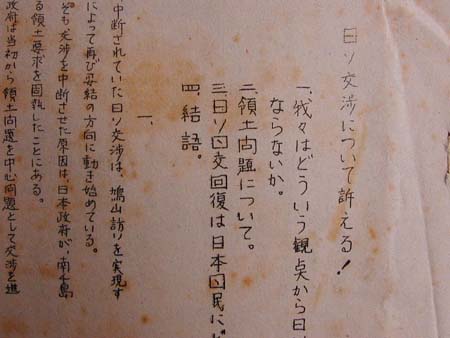 日ソ交渉について訴える！
一、我々はどういう観点から日
ならないか。
二、領土問題について。
三、日ソ国交回復は日本国民に
四、結語。
一、
中断されていた日ソ交渉は、鳩山訪ソを実現す
によって再び妥結の方向に動き始めている。
そも交渉を中断させた原因は、日本政府が南千島
る領土要求を固執したことにある。
政府は当初から領土問題を中心問題として交渉を進